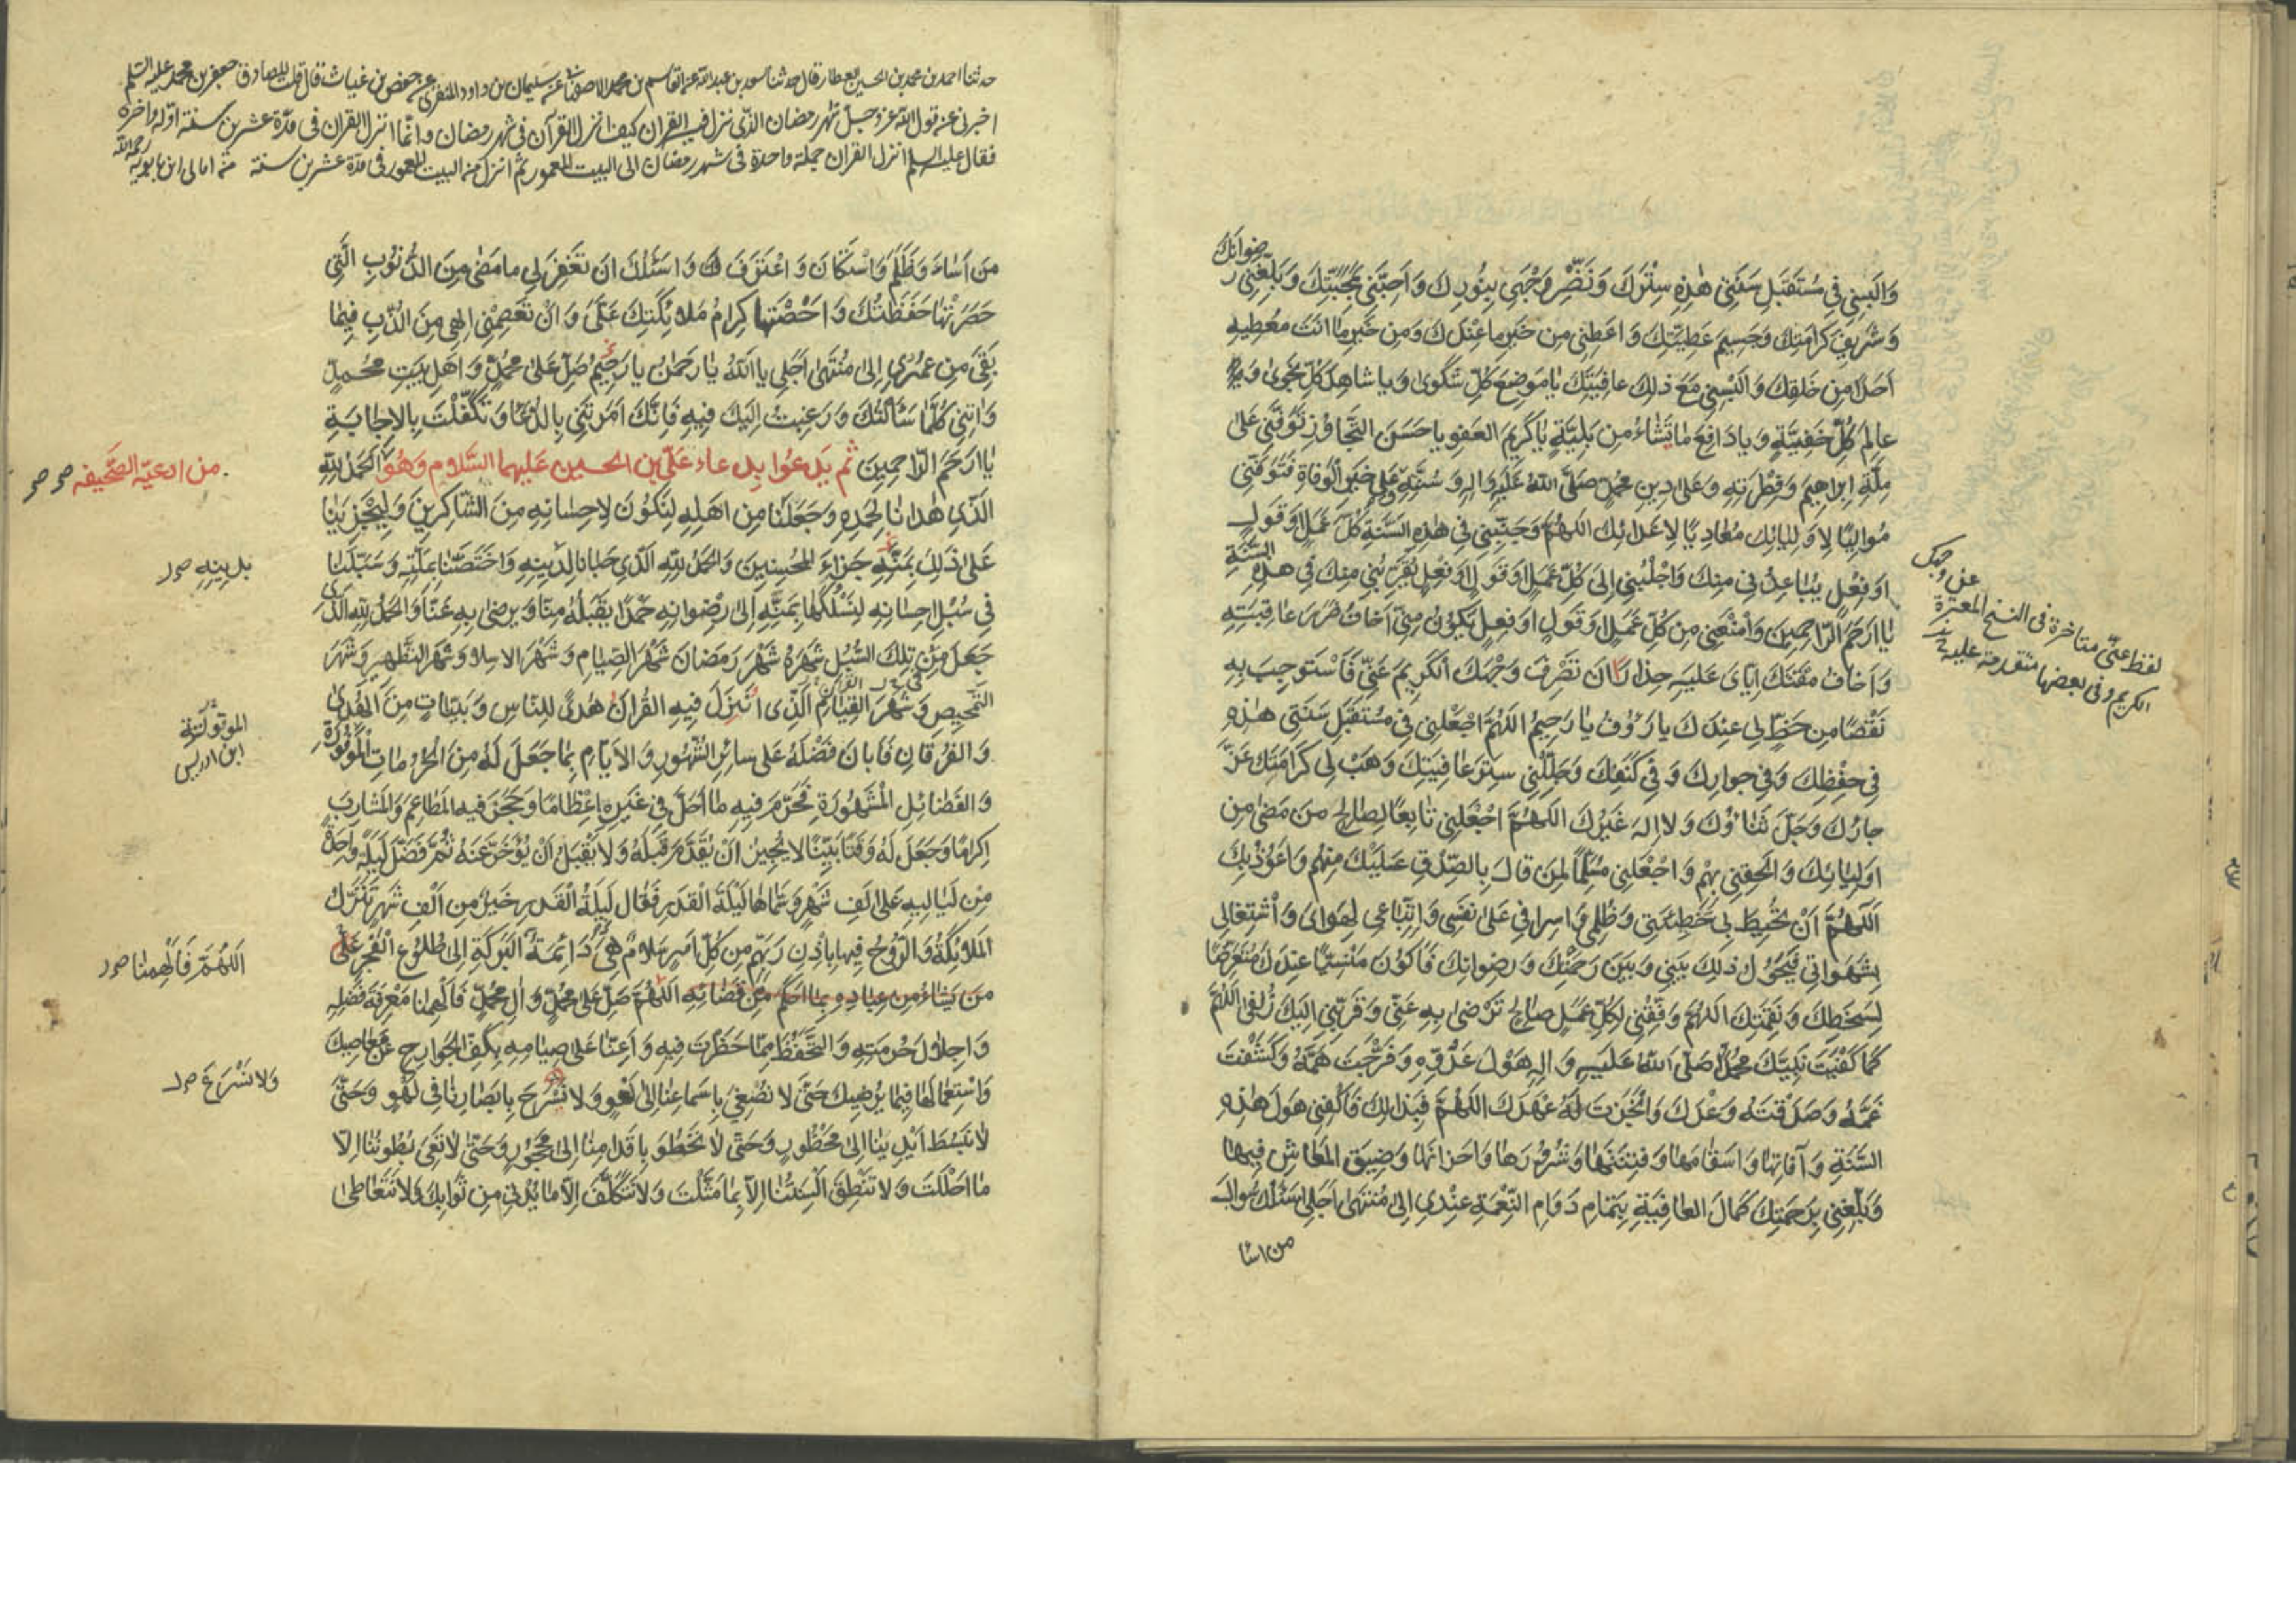 رضوانك
وَالبِسنِي فِي مُستَقبَلِ سَنَتِي هٰذِهِ سِتْرَكَ وَنَضِّر وَجْهِي بِنُورِكَ وَاَحِبَّنِي بِمَحَبَّتِكَ وَبَلِّغنِي
وَشَرِيفَ كَرَامَتِكَ وَجَسِيمَ عَطِيَّتِكَ وَاعطِنِي مِن خَيرِ ما عِندَكَ وَمِن خَيرِ مَا انتَ مُعطِيهِ
اَحَدًا مِن خَلقِكَ وَالبِسنِي مَعَ ذلِكَ عافِيَتَكَ يَا مَوضِعَ كُلِّ شَكوىٰ وَيا شاهِدَ كُلِّ نَجوىٰ وَيا
عالِمَ كُلِّ خَفِيَّةٍ وَيا دَافِعَ مَا يَشاءُ مِن بَلِيَّةٍ يَا كَرِيمَ العَفوِ يا حَسَنَ التَّجاوُزِ تَوَفَّنِي عَلىٰ
مِلَّةِ اِبراهِيمَ وَفِطْرَتِهِ وَعَلىٰ دِينِ مُحَمَّدٍ صَلَّى اللهُ عَلَيهِ وَالِهِ وَسُنَّتِهِ وَعَلىٰ خَيرِ الوَفاةِ فَتَوَفَّنِي
مُوالِيًا لِاَولِيائِكَ مُعادِيًا لِاَعدائِكَ اللهُمَّ وَجَنِّبنِي فِي هٰذِهِ السَّنَةِ كُلَّ عَمَلٍ اَو قَولٍ
اَو فِعْلٍ يُباعِدُنِي مِنكَ وَاجلُبنِي اِلىٰ كُلِّ عَمَلٍ اَو قَولٍ اَو فِعلٍ يُقَرِّبُنِي مِنكَ فِي هذِهِ السَّنَةِ
يَا اَرحَمَ الرَّاحِمِينَ وَامْنَعنِي مِن كُلِّ عَمَلٍ اَو قَولٍ اَو فِعلٍ يَكُونُ مِنِّي اَخافُ ضَرَرَ عاقِبَتِهِ
وَاَخافُ مَقتَكَ اِيَّايَ عَلَيهِ حِذارَ اَن تَصرِفَ وَجْهَكَ الكَرِيمَ عَنِّي فَاَسْتَوجِبَ بِهِ
نَقصًا مِن حَظٍّ لِي عِندَكَ يا رَؤُفُ يا رَحِيمُ اللهُمَّ اجعَلنِي فِي مُستَقبَلِ سَنَتِي هذِهِ
فِي حِفظِكَ وَفِي جوارِكَ وَفِي كَنَفِكَ وَجَلِّلنِي سِترَ عافِيَتِكَ وَهَبْ لِي كَرامَتَكَ عَزَّ
جارُكَ وَجَلَّ ثَناؤُكَ وَلا اِلهَ غَيرُكَ اللهُمَّ اجْعَلنِي تابِعًا لِصالِحِ مَن مَضىٰ مِن
اَولِيائِكَ وَالحِقنِي بِهِم وَاجْعَلنِي مُسَلِّمًا لِمَن قالَ بِالصِّدقِ عَلَيْكَ مِنهُم وَاَعُوذُ بِكَ
اللهُمَّ اَن تُحِيطَ بِي خَطِيئَتِي وَظُلمِي وَاسرافِي عَلىٰ نَفسِي وَاتِّباعِي لِهَوايَ وَاشتِغالِي
بِشَهَواتِي فَيَحُولَ ذلِكَ بَينِي وَبَينَ رَحمَتِكَ وَرِضوانِكَ فَاَكُونَ مَنسِيًّا عِندَكَ مُتَعَرِّضًا
لِسَخَطِكَ وَنَقِمَتِكَ اللهُمَّ وَفِّقنِي لِكُلِّ عَمَلٍ صالِحٍ تَرضىٰ بِهِ عَنِّي وَقَرِّبنِي اِلَيكَ زُلفىٰ اللهُمَّ
كَما كَفَيتَ نَبِيَّكَ مُحَمَّدًا صَلَّى اللهُ عَلَيهِ وَالِهِ هَولَ عَدُوِّهِ وَفَرَّجتَ هَمَّهُ وَكَشَفْتَ
غَمَّهُ وَصَدَقتَهُ وَعْدَكَ وَانجَزتَ لَهُ عَهدَكَ اللهُمَّ فَبِذلِكَ فَاكفِنِي هَولَ هذِهِ
السَّنَةِ وَآفاتِها وَاَسقامَها وَفِتنَتَها وَشُرُورَها وَاَحزانَها وَضِيقَ المَعاشِ فِيها
وَبَلِّغنِي بِرَحمَتِكَ كَمالَ العافِيَةِ بِتَمامِ دَوَامِ النِّعمَةِ عِندِي اِلىٰ مُنتَهىٰ اَجَلِي اَسئَلُكَ سُؤالَ
من اسا
لفظ عنّي متاخرة فى النسخ المعتبرة عن وجهك
الكريم وفى بعضها متقدمة عليه
حدثنا احمد بن محمد بن الحسين العطار قال حدثنا سعد بن عبدالله عن القاسم بن محمد الاصفهانى عن سليمان بن داود المنقرى عن حفص بن غياث قال قلت للصادق جعفر بن محمد عليه السلم
اخبرنى عن قول الله عز وجل شهر رمضان الذى نزل فيه القران كيف انزل القرآن فى شهر رمضان وانما انزل القران فى مدة عشرين سنة اوله واخره
فقال عليه السلم انزل القران جملة واحدة فى شهر رمضان الى البيت المعمور ثم انزل من البيت المعمور فى مدة عشرين سنة من امالى ابن بابويه رحمه الله
مَن اَساءَ وَظَلَمَ وَاسْتَكانَ وَاعْتَرَفَ لك وَاَسئَلُكَ اَن تَغفِرَ لِي ما مَضىٰ مِنَ الذُّنُوبِ الَّتِي
حَصَرَتْها حَفَظَتُكَ وَاَحْصَتْها كِرامُ مَلائِكَتِكَ عَلَيَّ وَاَنْ تَعصِمَنِي اِلهِي مِنَ الذُّنُوبِ فِيما
بَقِيَ مِن عُمُرِي اِلىٰ مُنتَهىٰ اَجَلِي يا اَللهُ يا رَحمٰنُ يا رَحِيمُ صَلِّ عَلىٰ مُحَمَّدٍ وَاَهلِ بَيتِ مُحَمَّدٍ
وَاتِنِي كُلَّما سَاَلتُكَ وَرَغِبتُ اِلَيكَ فِيهِ فَاِنَّكَ اَمَرتَنِي بِالدُّعاءِ وَتَكَفَّلْتَ بِالاِجابَةِ
يا اَرحَمَ الرّاحِمِينَ ثم يَدعُوا بِدعاء عَلَىّ بن الحسين عَلَيهما السَّلام وَهُوَ اَلحَمدُ لِلّهِ
الَّذِي هَدانا لِحَمدِهِ وَجَعَلَنا مِن اَهلِهِ لِنَكُونَ لِاِحسانِهِ مِنَ الشّاكِرِينَ وَلِيَجْزِيَنا
عَلىٰ ذلِكَ بِمَنِّهِ جَزاءَ المُحسِنِينَ وَالحَمدُ لِلّهِ الَّذِي حَبانا لِدِينِهِ وَاختَصَّنا بِمِلَّتِهِ وَسَبَّلَنا
فِي سُبُلِ اِحسانِهِ لِنَسْلُكَها بِمَنِّهِ اِلىٰ رِضوانِهِ حَمدًا يَقبَلُهُ مِنّا وَيَرضىٰ بِهِ عَنّا وَالحَمدُ لِلّهِ الَّذِي
جَعَلَ مِن تِلكَ السُّبُلِ شَهرَهُ شَهرَ رَمَضانَ شَهرَ الصِّيامِ وَشَهرَ الاِسلامِ وَشَهرَ التَّطهِيرِ وَشَهرَ
التَّمحِيصِ وَشَهرَ القِيامِ الَّذِى اُنزِلَ فِيهِ القُرانُ هُدىً لِلنّاسِ وَبَيِّناتٍ مِنَ الهُدىٰ
وَالفُرقانِ فَاَبانَ فَضْلَهُ عَلىٰ سائِرِ الشُّهُورِ وَالاَيّامِ بِما جَعَلَ لَهُ مِنَ الحُرُماتِ المَوفُورَةِ
وَالفَضائِلِ المَشهُورَةِ فَحَرَّمَ فِيهِ ما اَحَلَّ فِي غَيرِهِ اِعظامًا وَحَجَرَ فيه المَطاعِمَ وَالمَشارِبَ
اِكرامًا وَجَعَلَ لَهُ وَقتًا بَيِّنًا لا يُجِيزُ اَنْ يُقَدَّمَ قَبلَهُ وَلا يَقْبَلُ اَنْ يُؤَخَّرَ عَنهُ ثُمَّ فَضَّلَ لَيلَةً واحِدَةً
مِن لَيالِيهِ عَلىٰ اَلفِ شَهرٍ وَسَمّاها لَيلَةَ القَدرِ فَقالَ لَيلَةُ القَدرِ خَيرٌ مِن اَلفِ شَهرٍ تَنَزَّلُ
المَلائِكَةُ وَالرُّوحُ فِيها بِاِذنِ رَبِّهِم مِن كُلِّ اَمرٍ سَلامٌ هِيَ دَائِمَةُ البَرَكَةِ اِلىٰ طُلُوعِ الفَجرِ عَلىٰ
مَن يَشاءُ مِن عِبادِهِ بِما اَحكَمَ مِن قَضائِهِ اللهُمَّ صَلِّ عَلىٰ مُحَمَّدٍ وَالِ مُحَمَّدٍ فَاَلهِمنا مَعرِفَةَ فَضلِهِ
وَاِجلالَ حُرمَتِهِ وَالتَّحَفُّظَ مِمّا حَظَرتَ فِيهِ وَاَعِنّا عَلىٰ صِيامِهِ بِكَفِّ الجَوارِحِ عَن مَعاصِيكَ
وَاستِعمالِها فِيما يُرضِيكَ حَتّىٰ لا نُصغِيَ بِاَسماعِنا اِلىٰ لَغوٍ وَلا نُسرِحَ بِاَبصارِنا فِي لَهوٍ وَحَتّىٰ
لا نَبسُطَ اَيدِيَنا اِلىٰ مَحظُورٍ وَحَتّىٰ لا نَخطُوَ بِاَقدامِنا اِلىٰ مَحجُورٍ وَحَتّىٰ لا تَعِيَ بُطُونُنا اِلّا
ما اَحلَلتَ وَلا تَنطِقَ اَلسِنَتُنا اِلّا بِما مَثَّلتَ وَلا نَتَكَلَّفَ اِلّا ما يُدنِي مِن ثَوابِكَ وَلا نَتَعاطىٰ
من ادعيّة الصَّحِيفه
بدينِهِ
ابن ادريس
اللّٰهُمَّ فَاَلهِمنا
وَلا نُسْرِعَ